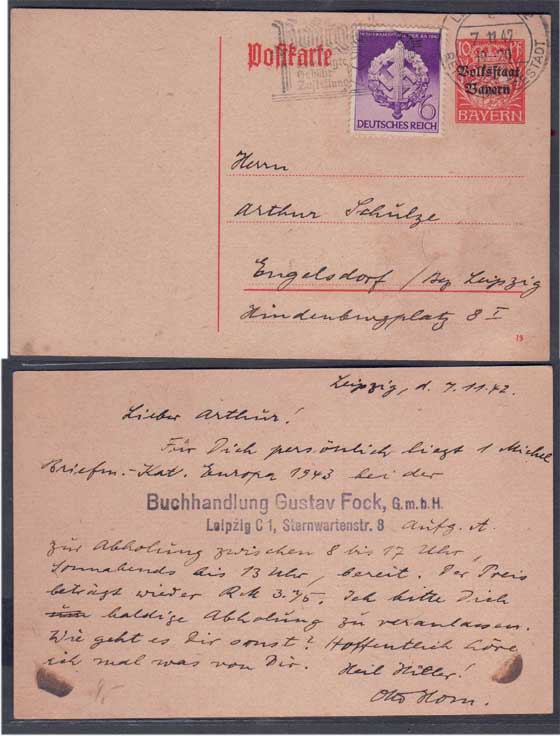 Postkarte
7.11.42
10 PF
Volksstaat
Bayern
BAYERN
6
DEUTSCHES REICH
Herrn
Arthur Schulze
Engelsdorf / Bez Leipzig
Hindenburgplatz 8 I
Leipzig, d. 7.11.42.
Lieber Arthur!
Für Dich persönlich liegt 1 Michel
Briefm.-Kat. Europa 1943 bei der
Buchhandlung Gustav Fock, G.m.b.H.
Leipzig C 1, Sternwartenstr. 8 Aufg. A
zur Abholung zwischen 8 bis 17 Uhr,
Sonnabends bis 13 Uhr, bereit. Der Preis
beträgt wieder RM 3.75. Ich bitte Dich
um baldige Abholung zu veranlassen.
Wie geht es Dir sonst? Hoffentlich höre
ich mal was von Dir. Heil Hitler!
Otto Horn.